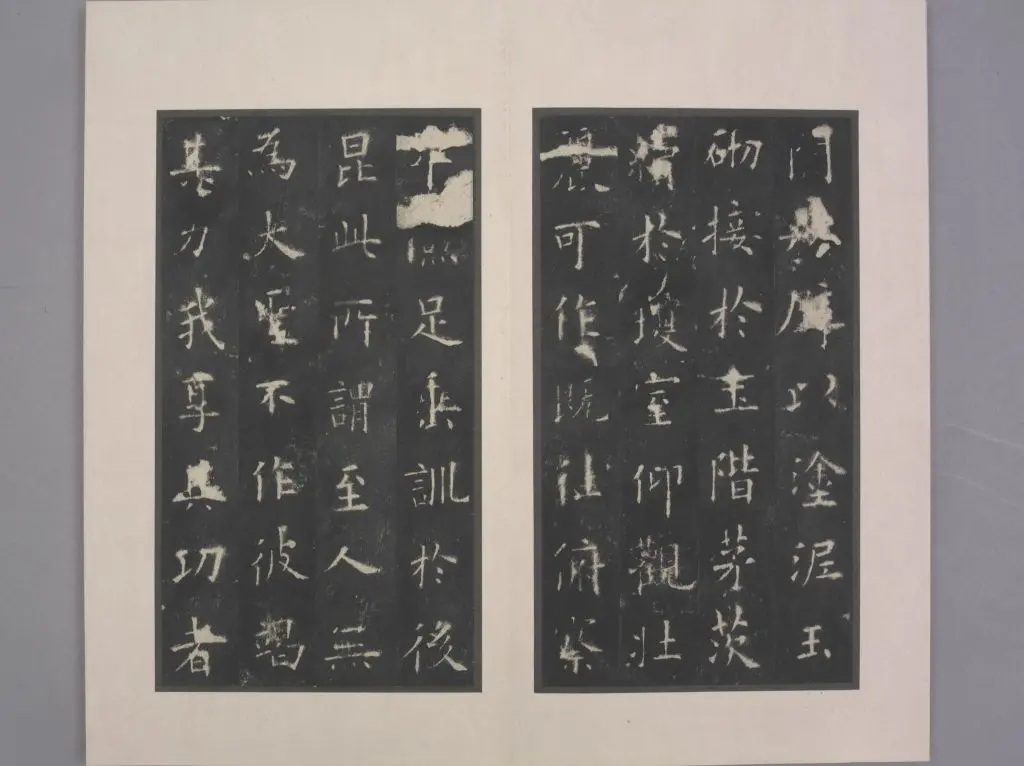 壁以塗泥玉
砌接於土階茅茨
續於瓊室仰觀壯
麗可作既往俯察
足垂訓於後
昆此所謂至人無
為大聖不作彼竭
其力我享其功者